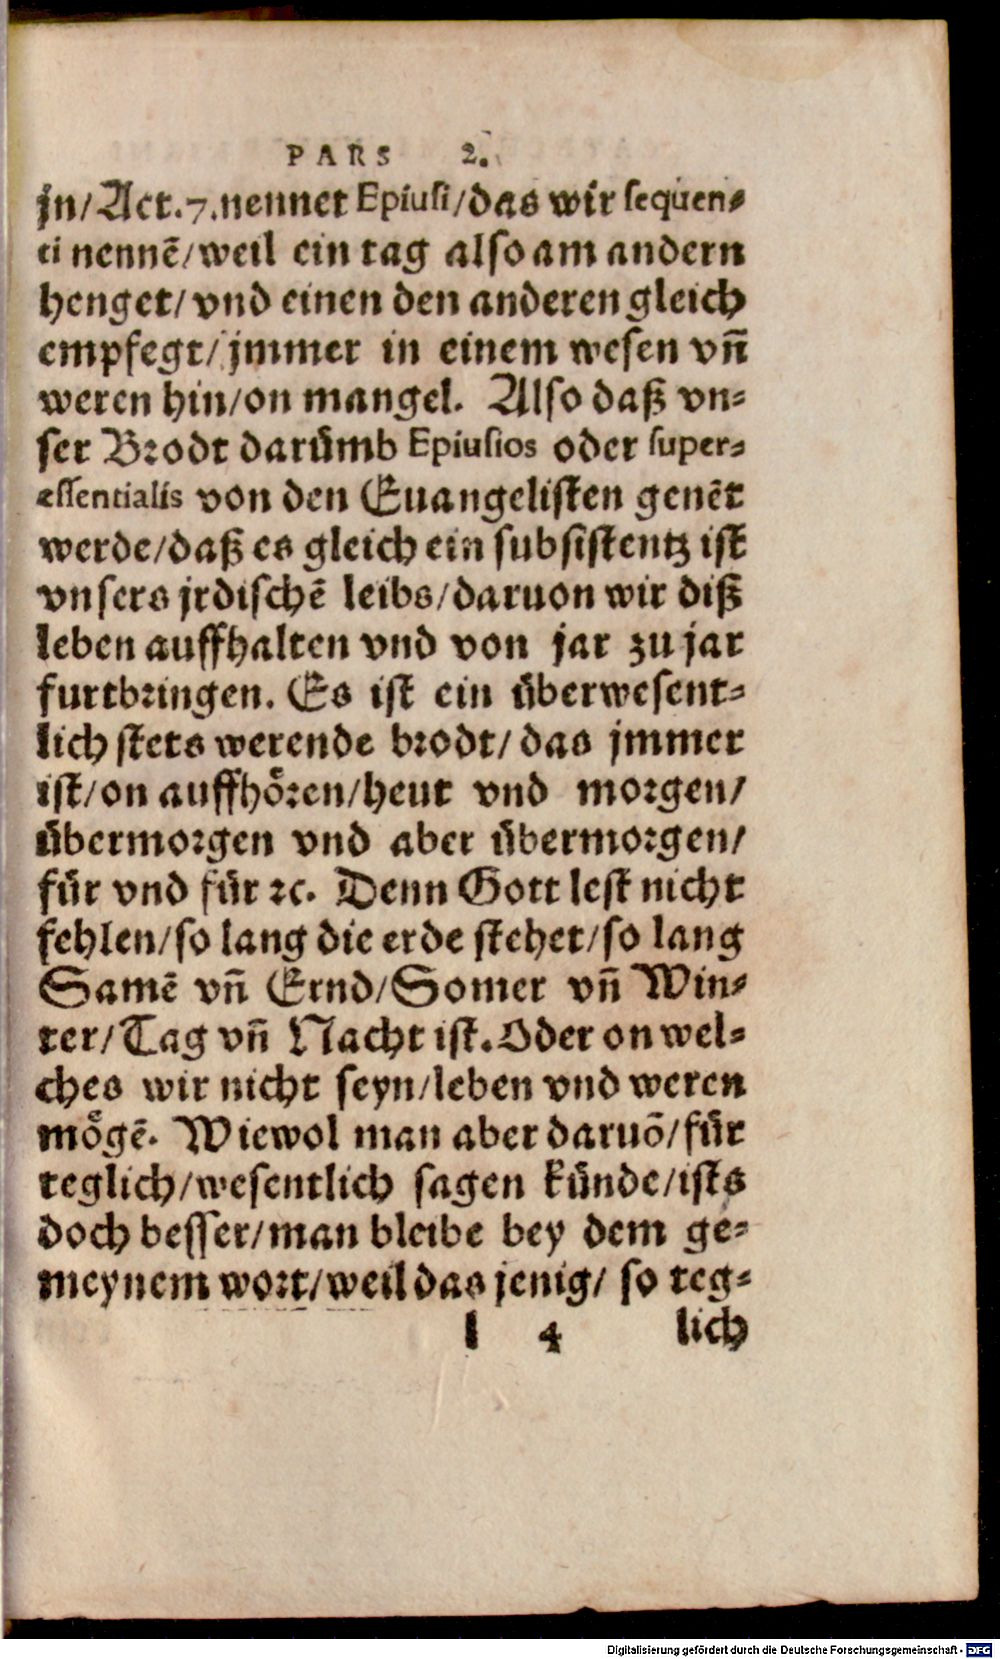 PARS 2.
jn/Act.7.nennet Epiusi/das wir sequen-
ti nennē/weil ein tag also am andern
henget/vnd einen den anderen gleich
empfegt/jmmer in einem wesen vñ
weren hin/on mangel. Also daß vn-
ser Brodt darümb Epiusios oder super-
essentialis von den Euangelisten genēt
werde/daß es gleich ein subsistentz ist
vnsers jrdischē leibs/daruon wir diß
leben auffhalten vnd von jar zu jar
furtbringen. Es ist ein überwesent-
lich stets werende brodt/das jmmer
ist/on auffhören/heut vnd morgen/
übermorgen vnd aber übermorgen/
für vnd für ꝛc. Denn Gott lest nicht
fehlen/so lang die erde stehet/so lang
Samē vñ Ernd/Somer vñ Win-
ter/Tag vñ Nacht ist. Oder on wel-
ches wir nicht seyn/leben vnd weren
mögē. Wiewol man aber daruō/für
teglich/wesentlich sagen künde/ists
doch besser/man bleibe bey dem ge-
meynem wort/weil das jenig/ so teg-
l 4 lich
Digitalisierung gefördert durch die Deutsche Forschungsgemeinschaft - DFG